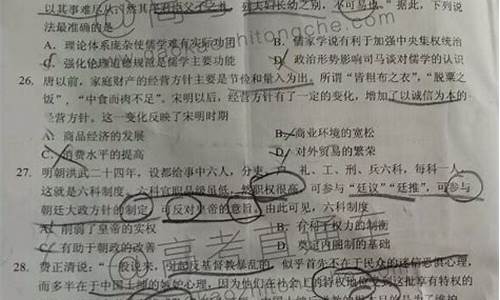 以其事难尽从，
夫妇长幼之别，不可易也。”据此，下列说
法最准确的是
A. 理论体系庞杂使儒学难有实际功用
B. 儒家学说有利于加强中央集权统治
C. 强化伦理道德规范是儒学主要功能
D. 政治形势影响司马谈对儒学的认识
26. 唐以前，家庭财产的经营方针主要是节俭和量入为出。所谓“皆粗布之衣”，“脱粟之
饭”，“中食而肉不足”。宋明以后，经营方针有了一定的变化，增加了以诚信为本的
经营方针。这一变化反映了宋明时期
A. 商品经济的发展
B. 商业环境的宽松
C. 消费水平的提高
D. 对外贸易的繁荣
27. 明朝洪武二十四年，设都给事中六人，分吏、户、礼、工、刑、兵六科，每科一人，
这就是六科制度。六科官职品级虽低，然职权很高，可参与“廷议”“廷推”，可参与
朝廷大政方针的制定，可反对皇帝的意旨。由此可见，六科制度
A. 削弱了皇帝的实权
B. 有利于权力的制衡
C. 有助于朝政的改善
D. 奠定内阁制的基础
28. 费正清说：“一般说来，对起反基督教暴乱的，似乎首先不在于民众的迷信恐惧心理，
而多半在于中国士绅的嫉妒心理，因为他们在社会上的特权地位受到这批享有特权的